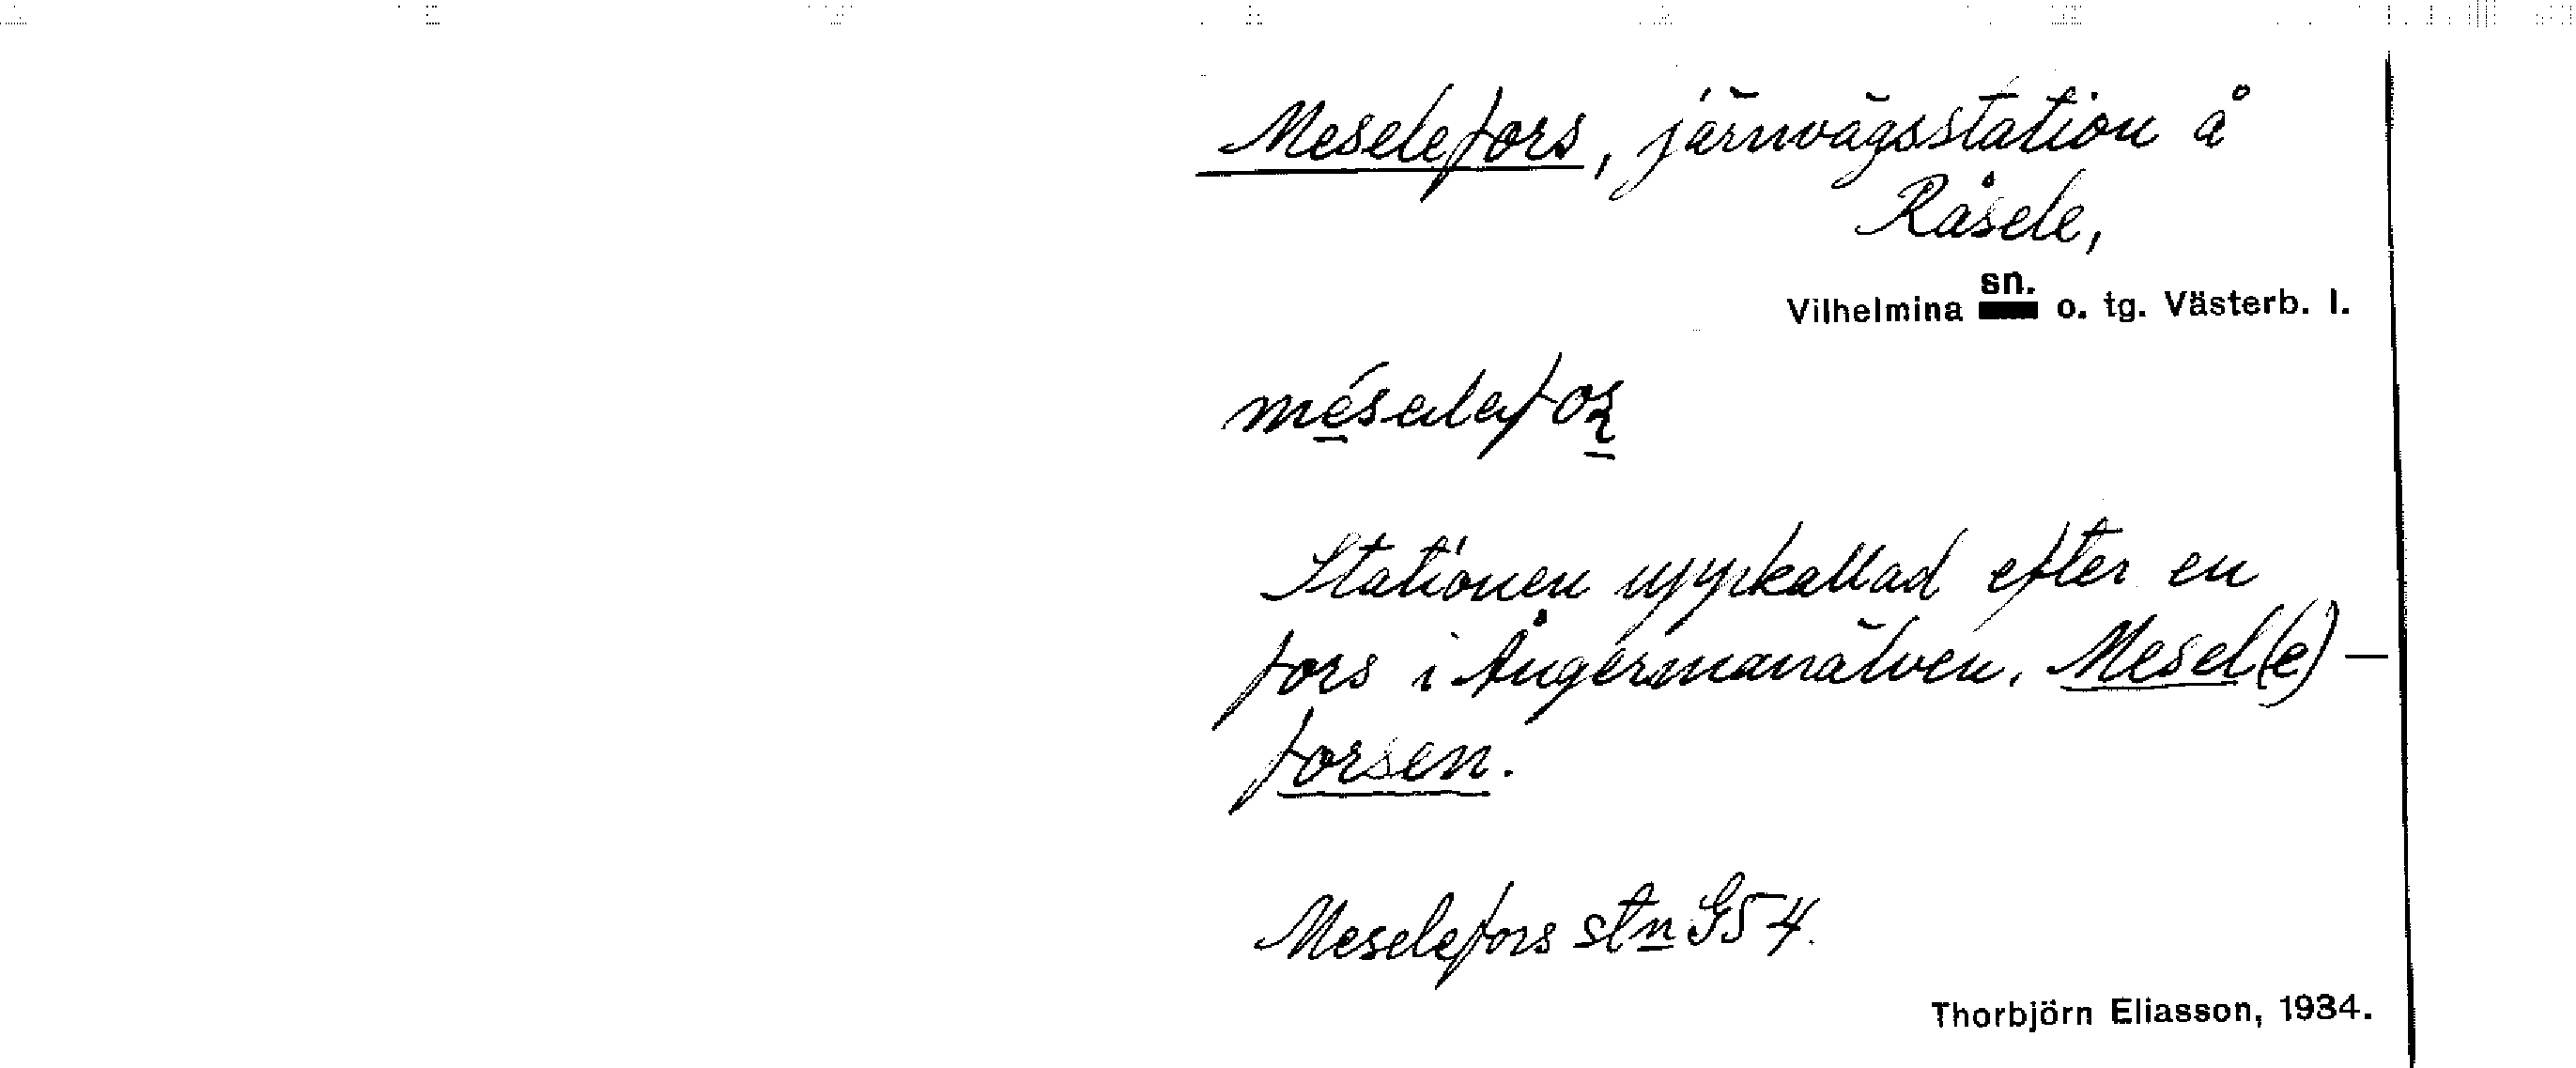 Meselefors, järnvägsstation å
Råsele,
Vilhelmina sn. o. tg. Västerb. l.
Stationen uppkallad efter en
fors i Ångermanälven, Mesel(e)-
forsen.
Meselefors stn G54.
Thorbjörn Eliasson, 1934.